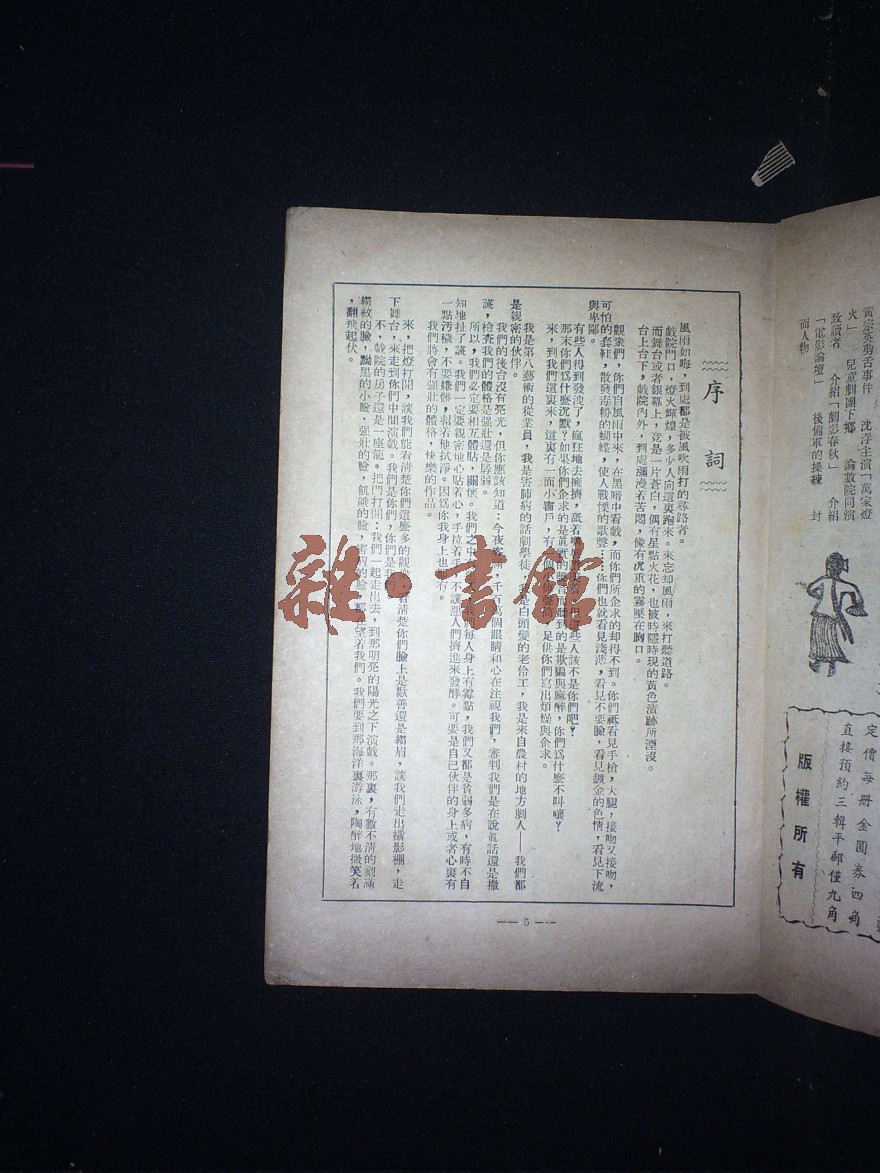 黃宗英剪舌事件　沈浮主演「萬家燈
火」　兒童劇團下鄉　論數院同演
致讀者　介紹「劇影春秋」　介紹
「電影論壇」　後備軍的操練　封
面人物
定價每册金圓券四角
直接預約三輯平郵僅九角
版權所有
序詞
風雨如晦，到處都是被風吹雨打的尋路者。
戲院門口，燈火輝煌，多少人向這裏跑來。來忘却風雨，來打聽道路。
而舞台或者銀幕上，竟是一片蒼白，偶有星點火花，也被時隱時現的黃色漬跡所湮沒。
台上台下，戲院內外，到處瀰漫着苦悶，像有沉重的霧壓在胸口。
觀衆們，你們自風雨中來，在黑暗中看戲，而你們所企求的却得不到。你們祇看見手槍，大腿，接吻又接吻，
可怕的套鞋，散發毒粉的蝴蝶，使人戰慄的歌聲……你們也就看見淺薄，看見不要臉，看見鍍金的色情，看見下流
與卑鄙。
有些人得到發洩了，瘋狂地去擁擠，舐着嘴 些人該不是你們吧？
那末你們爲什麽沉默？如果你們企求的是眞實的聲音而聽到的是欺騙與麻醉，你們爲什麽不叫嚷？
來，到我們這裏來，這裏有一面小窗戶，有 足供你們寫出煩燥與企求。
我是第八藝術的從業員，我是害肺病的話劇學徒，我是白頭髮的老伶工，我是來自農村的地方劇人——我們都
是親密的伙伴。
我們的後台沒有亮光，但你應該知道：今夜客滿，千百萬個眼睛和心在注視我們，審判我們是在說眞話還是撒
謊，檢查我們的體格是强壯還是孱弱。
所以，我們必定要相互體貼，關懷。我們之中 每人身上有霉點，我們又都是貧弱多病，有時不自
知地扯了謊。我們一定要親密地心貼着心，手拉着手，不讓惡人們擠進來發酵。可要是自己伙伴的身上或者心裏有
一點汚穢，不要嫌髒，幫着他拭淨。因爲你我身上也都有。
我們將會有强壯的體格，快樂的作品。
來，把燈打開，讓我們能看清楚你們這麽多的觀衆 看清楚你們臉上是歡善還是縐眉，讓我們走出攝影棚，走
下舞台，來走到你們中間演戲。我們是你們，你們是我們。
不，戲院的房子還是一座籠。把門打開：我們一起走出去，到那明亮的陽光之下演戲。那裏，有數不清的刻滿
縐紋的臉，黝黑的小臉，强壯的臉，飢餓的臉，害病的臉，都在望着我們。我們要到那海洋裏游泳，陶醉地微笑着
，翻飛起伏。
— 5 —
雜·書館